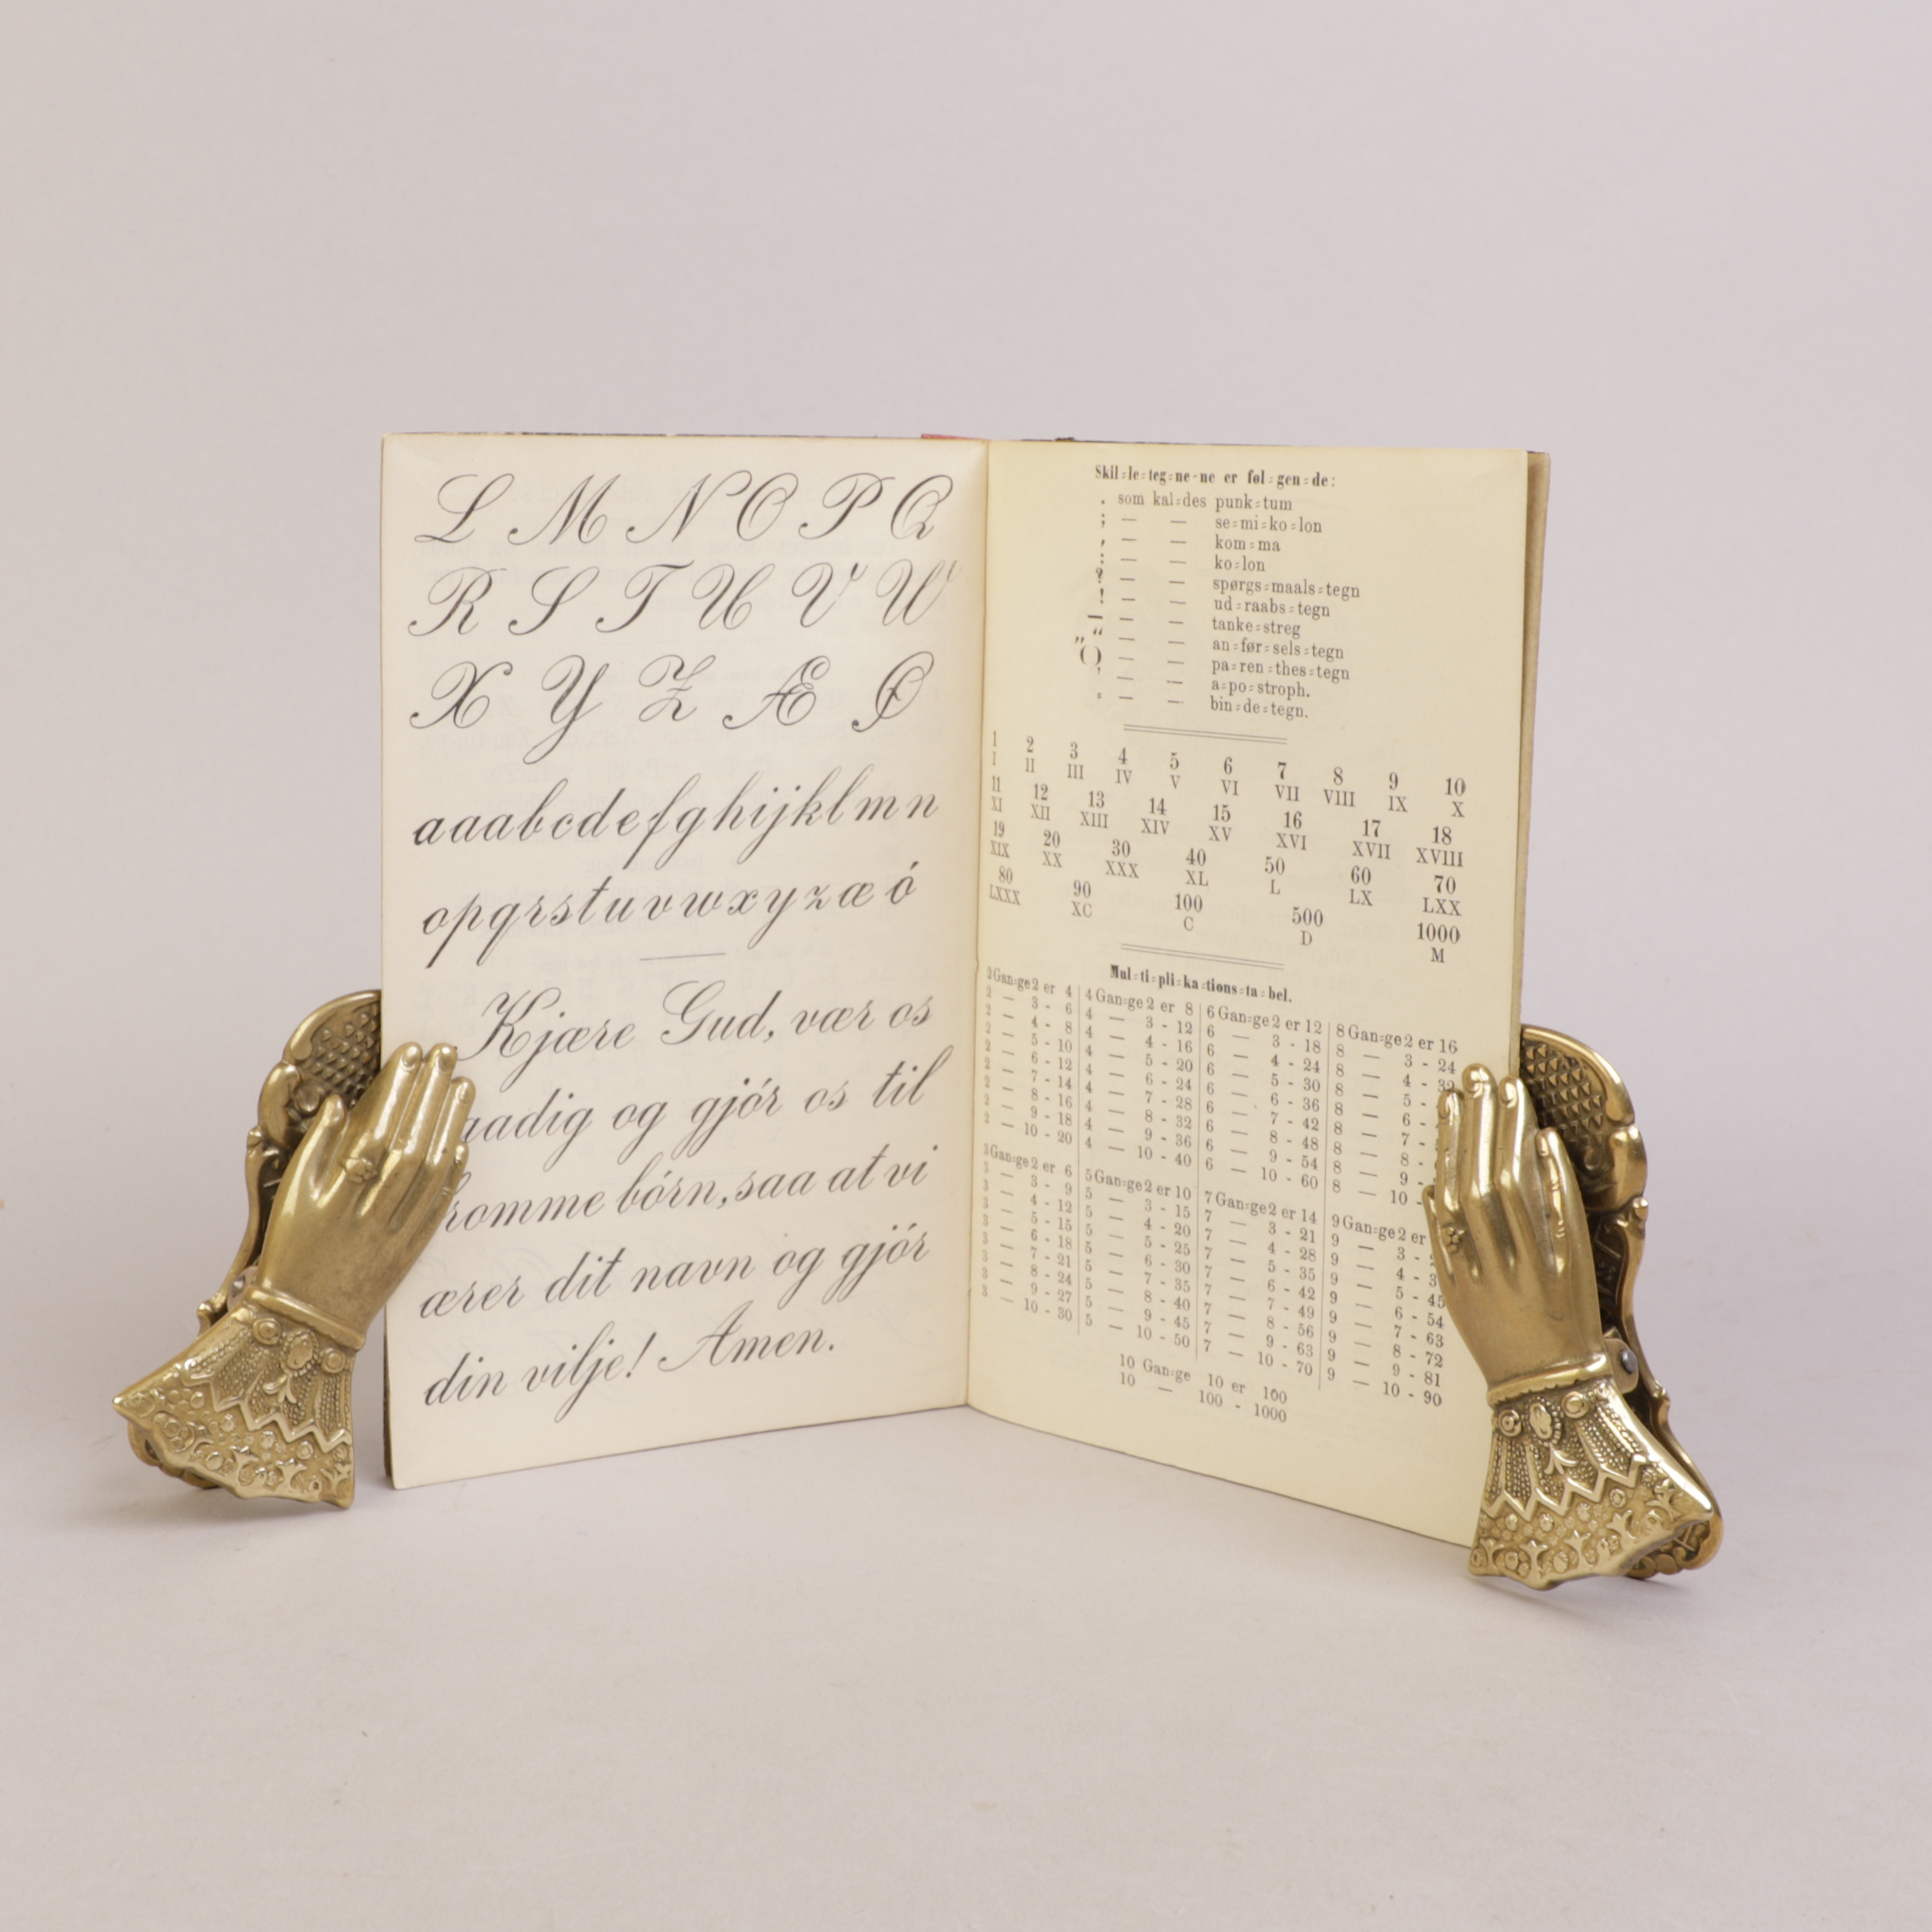 L M N O P Q
R S T U V W
X Y Z Æ Ø
aaabcdefghijklmn
opqrstuvwxyzæó
Kjære Gud, vær os
aadig og gjór os til
romme bórn, saa at vi
ærer dit navn og gjór
din vilje! Amen.
Skil=le=teg=ne=ne er føl=gen=de:
. som kal=des punk=tum
; — — se=mi=ko=lon
, — — kom=ma
: — — ko=lon
? — — spørgs=maals=tegn
! — — ud=raabs=tegn
— — — tanke=streg
„“ — — an=før=sels=tegn
() — — pa=ren=thes=tegn
' — — a=po=stroph.
= — — bin=de=tegn.
1 2 3 4 5 6 7 8 9 10
I II III IV V VI VII VIII IX X
11 12 13 14 15 16 17 18
XI XII XIII XIV XV XVI XVII XVIII
19 20 30 40 50 60 70
XIX XX XXX XL L LX LXX
80 90 100 500 1000
LXXX XC C D M
Mul=ti=pli=ka=tions=ta=bel.
2 Gan=ge 2 er 4
2 — 3 - 6
2 — 4 - 8
2 — 5 - 10
2 — 6 - 12
2 — 7 - 14
2 — 8 - 16
2 — 9 - 18
2 — 10 - 20
3 Gan=ge 2 er 6
3 — 3 - 9
3 — 4 - 12
3 — 5 - 15
3 — 6 - 18
3 — 7 - 21
3 — 8 - 24
3 — 9 - 27
3 — 10 - 30
4 Gan=ge 2 er 8
4 — 3 - 12
4 — 4 - 16
4 — 5 - 20
4 — 6 - 24
4 — 7 - 28
4 — 8 - 32
4 — 9 - 36
4 — 10 - 40
5 Gan=ge 2 er 10
5 — 3 - 15
5 — 4 - 20
5 — 5 - 25
5 — 6 - 30
5 — 7 - 35
5 — 8 - 40
5 — 9 - 45
5 — 10 - 50
6 Gan=ge 2 er 12
6 — 3 - 18
6 — 4 - 24
6 — 5 - 30
6 — 6 - 36
6 — 7 - 42
6 — 8 - 48
6 — 9 - 54
6 — 10 - 60
7 Gan=ge 2 er 14
7 — 3 - 21
7 — 4 - 28
7 — 5 - 35
7 — 6 - 42
7 — 7 - 49
7 — 8 - 56
7 — 9 - 63
7 — 10 - 70
8 Gan=ge 2 er 16
8 — 3 - 24
8 — 4 - 32
8 — 5 -
8 — 6 -
8 — 7 -
8 — 8 -
8 — 9 -
8 — 10 -
9 Gan=ge 2 er
9 — 3 -
9 — 4 - 3
9 — 5 - 45
9 — 6 - 54
9 — 7 - 63
9 — 8 - 72
9 — 9 - 81
9 — 10 - 90
10 Gan=ge 10 er 100
10 — 100 - 1000